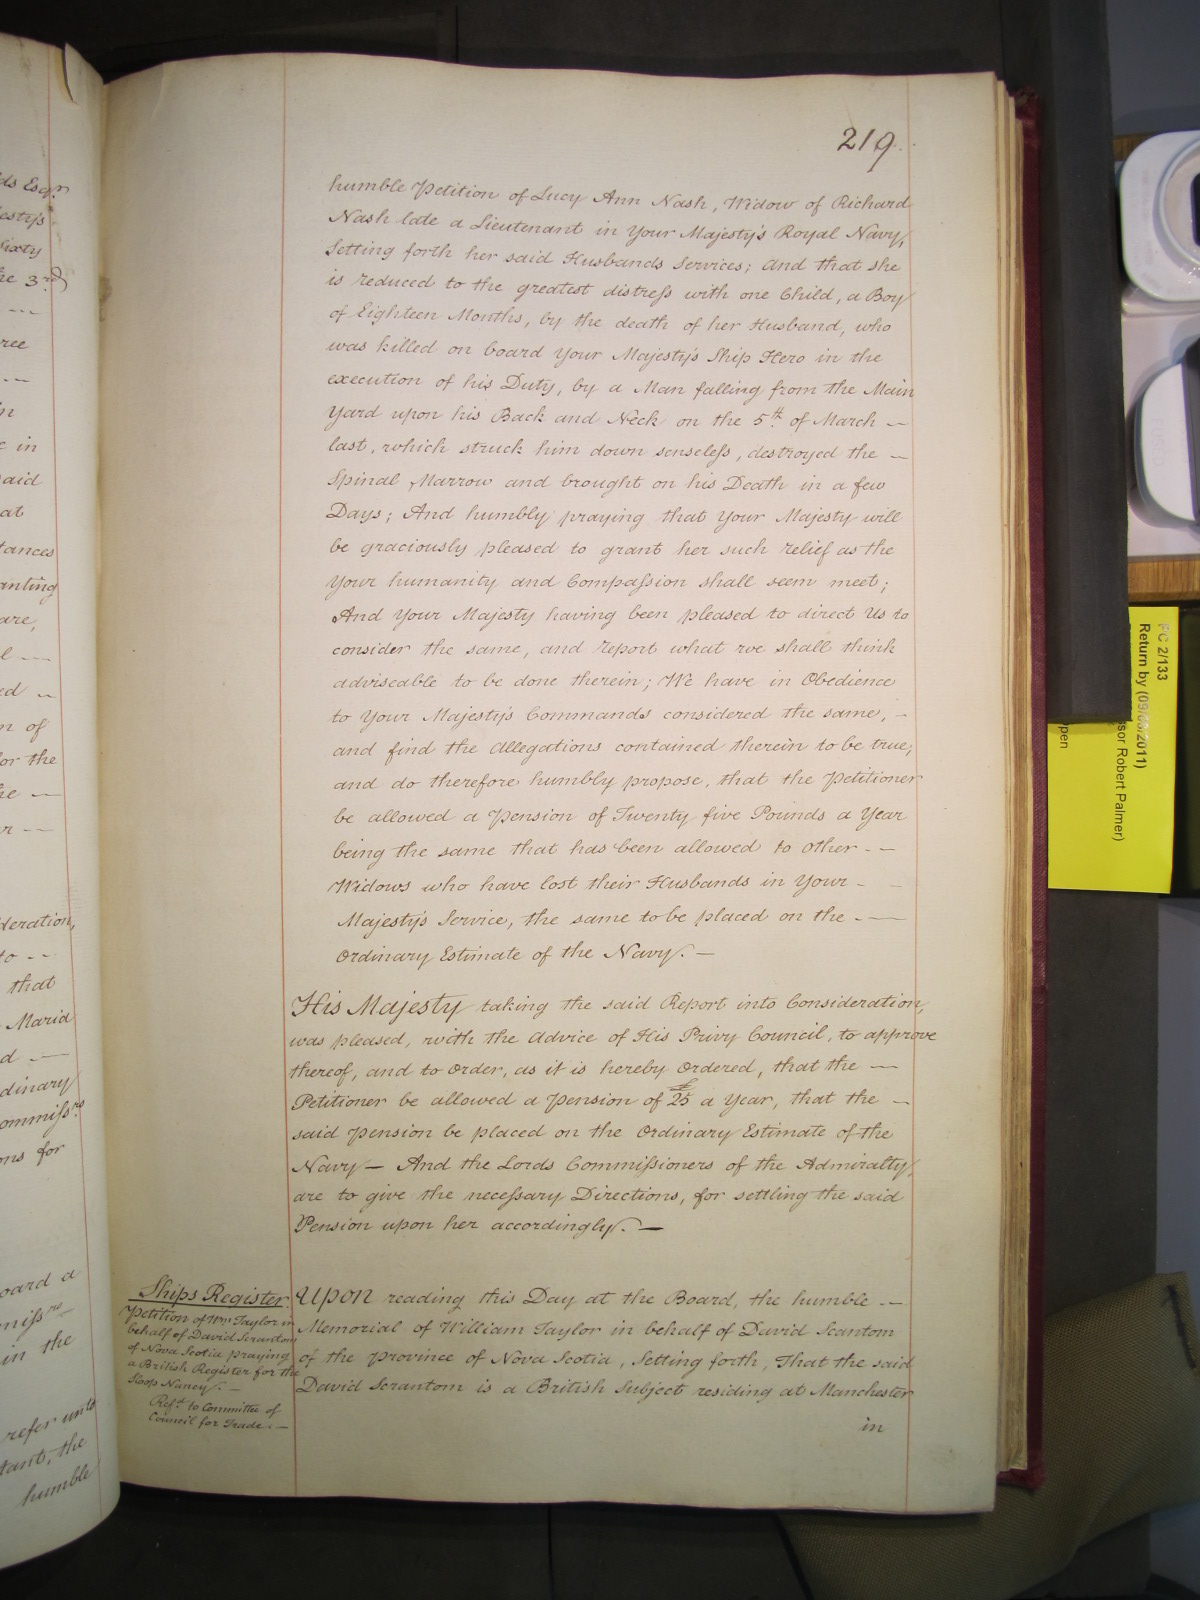 219
humble Petition of Lucy Ann Nash, Widow of Richard
Nash late a Lieutenant in Your Majesty's Royal Navy,
Setting forth her said Husbands Services; And that she
is reduced to the greatest distress with one Child, a Boy
of Eighteen Months, by the death of her Husband, who
was killed on board Your Majesty's Ship Hero in the
execution of his Duty, by a Man falling from the Main
Yard upon his Back and Neck on the 5th of March —
last, which struck him down senseless, destroyed the —
Spinal Marrow and brought on his Death in a few
Days; And humbly praying that Your Majesty will
be graciously pleased to grant her such relief as the
Your humanity and Compassion shall seem meet;
And Your Majesty having been pleased to direct Us to
consider the same, and report what we shall think
adviseable to be done therein; We have in Obedience
to Your Majesty's Commands considered the same, -
and find the Allegations contained therein to be true;
and do therefore humbly propose, that the Petitioner
be allowed a Pension of Twenty five Pounds a Year
being the same that has been allowed to other - —
Widows who have lost their Husbands in Your - -
Majesty's Service, the same to be placed on the - —
Ordinary Estimate of the Navy. —
His Majesty taking the said Report into Consideration,
was pleased, with the Advice of His Privy Council, to approve
thereof, and to Order, as it is hereby Ordered, that the —
Petitioner be allowed a Pension of £25 a Year, that the —
said Pension be placed on the Ordinary Estimate of the
Navy — And the Lords Commissioners of the Admiralty,
are to give the necessary Directions, for settling the said
Pension upon her accordingly. —
Ships Register
Petition of Wm Taylor in
behalf of David Scrantom
of Nova Scotia praying
a British Register for the
Sloop Nancy. —
Refd. to Committee of
Council for Trade. —
Upon reading this Day at the Board, the humble —
Memorial of William Taylor in behalf of David Scantom
of the Province of Nova Scotia, Setting forth, That the said
David Scrantom is a British Subject residing at Manchester
in
ds Esqr.
esty's
Sixty
he 3rd
ree
in
said
at
tances
anting
are,
ed
n of
for the
he
deration,
to - -
that
Maria
d —
dinary
ommissrs
ons for
oard a
in the
refer unto
tant, the
humble
PC 2/133
Return by (09/05/2011)
ssor Robert Palmer)
pen